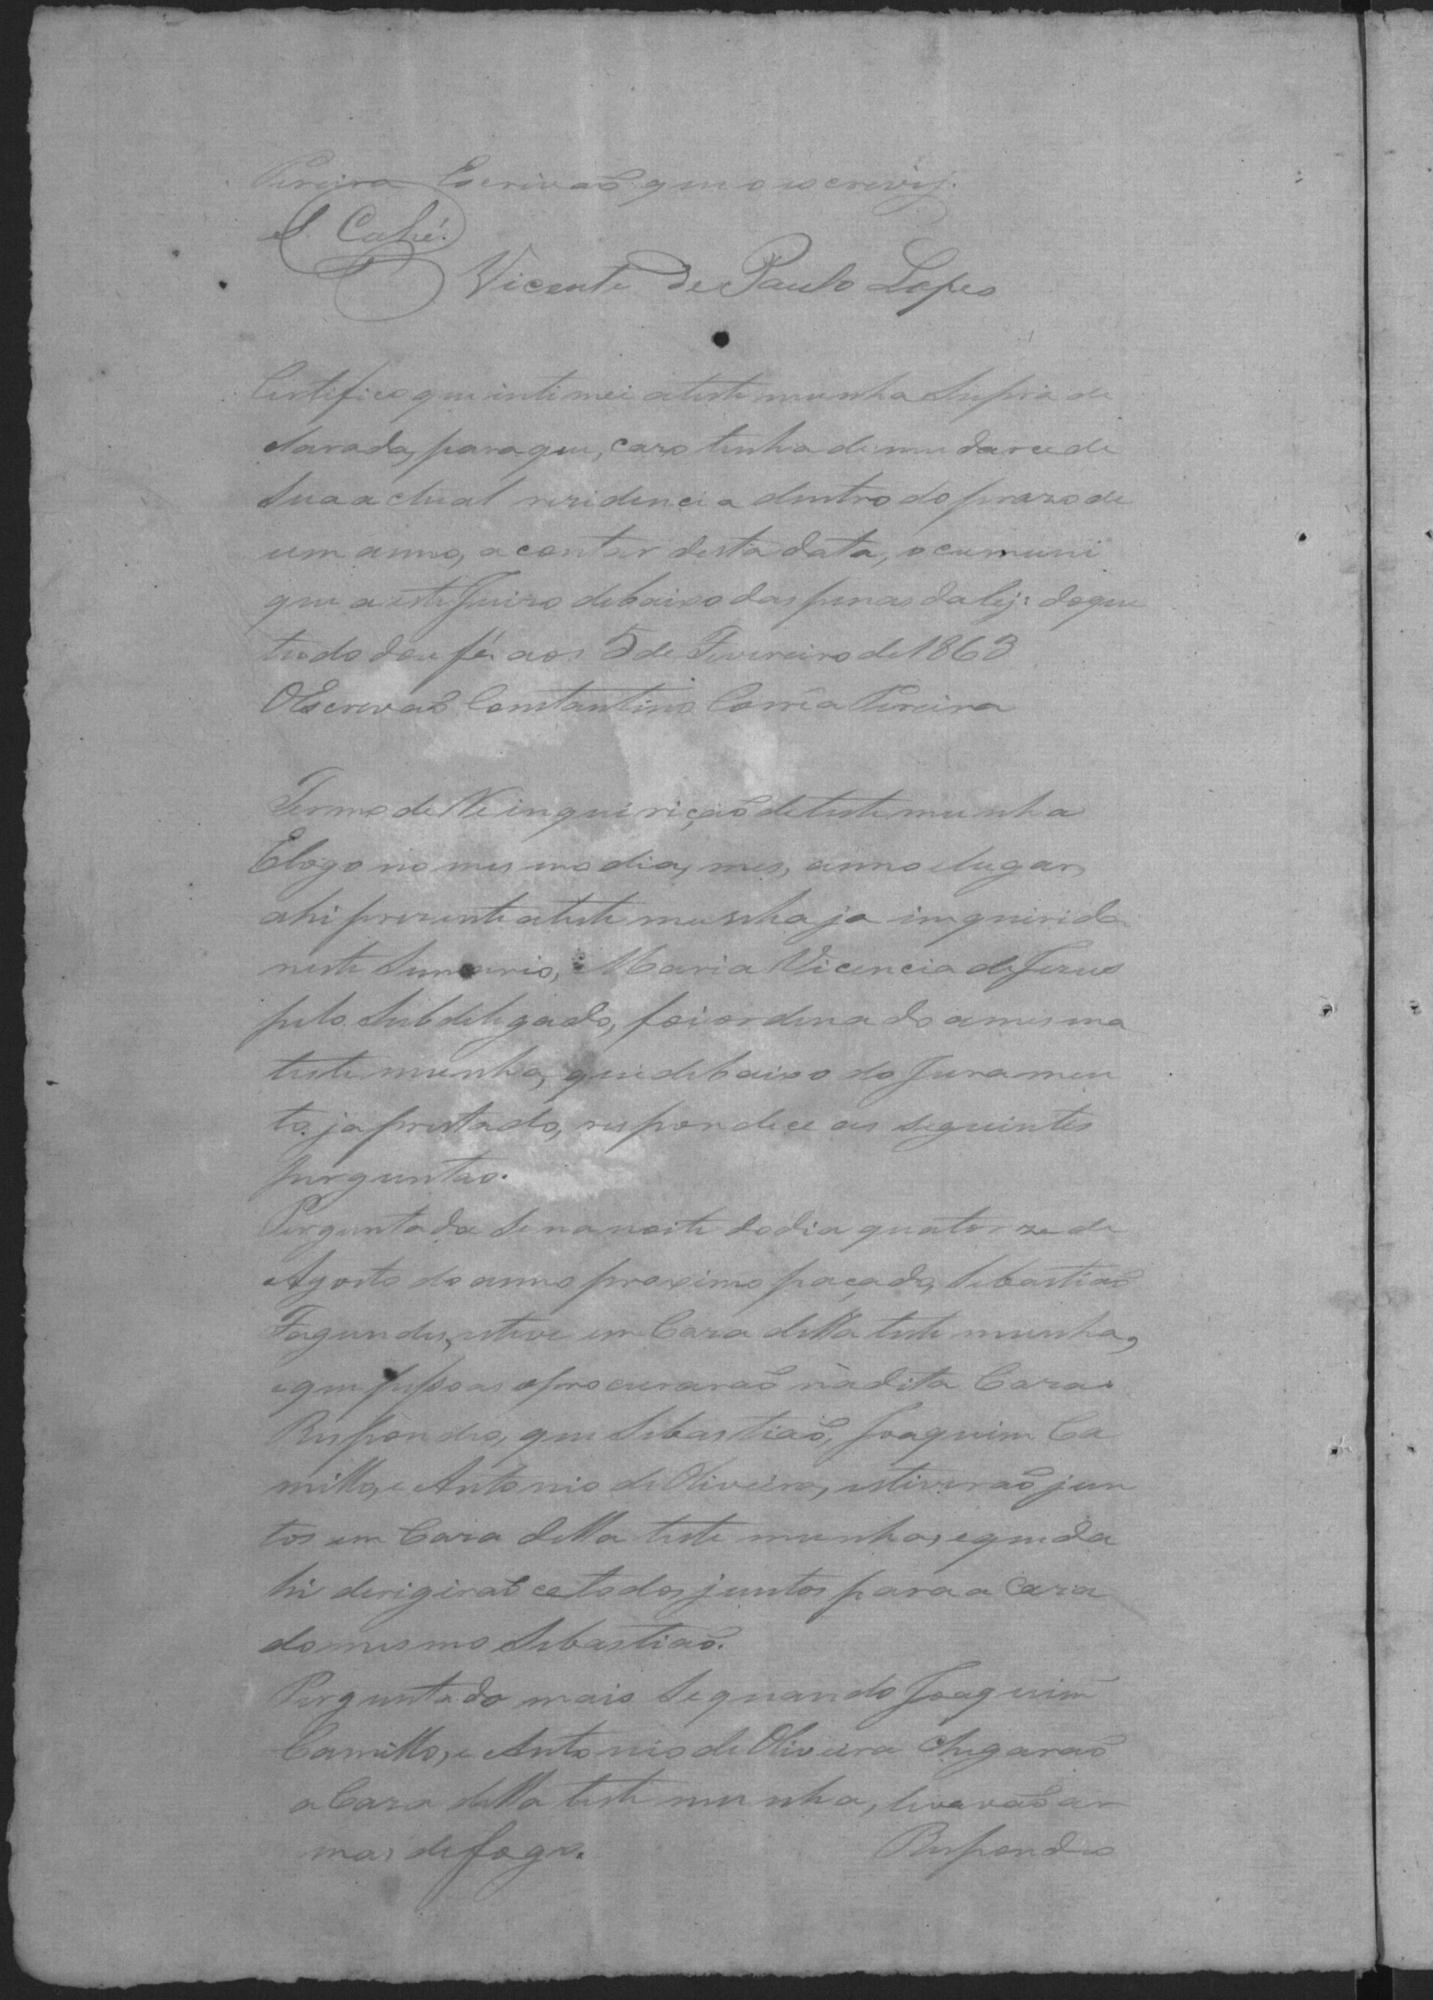 Pereira Escrivaõ, que o escrevÿ.
S. Café.
Vicente de Paulo Lopes
Certifico que intimei a testemunha supra de
clarada, para que, cazo tenha de mudarce de
sua actual rezidencia dentro do prazo de
um anno, a contar desta data, o cumuni
que a este Juizo debaixo das penas da ley: do que
tudo dou fé. aos 5 de Fevereiro de 1863
OEscrevaõ Constantino Corrêa Pereira
Termo de Reinquiriçaõ de testemunha
E logo no mesmo dia, mes, anno e lugar,
ahi prezente a testemunha ja inquirida
neste Sumario, Maria Vicencia de Jezus
pelo Subdelegado, foi ordenado a mesma
testemunha, que debaixo do Juramen
to ja prestado, respondece as seguintes
perguntas.
Perguntada se na noite do dia quatorze de
Agosto do anno proximo paçado, Sebastiaõ
Fagundes, esteve em Caza della testemunha,
e que pessoas o procuraraõ nà dita Caza.
Respondeo, que Sebastiaõ, Joaquim Ca
millo, e Antonio de Oliveira, estiveraõ jun
tos em Caza della testemunha, e que da
hi derigiraõ ce todos juntos para a Caza
do mesmo Sebastiaõ.
Perguntado mais se quando Joaquim
Camillo, e Antonio de Oliveira chegaraõ
a Caza della testemunha, levavaõ ar
mas de fogo. Respondeo